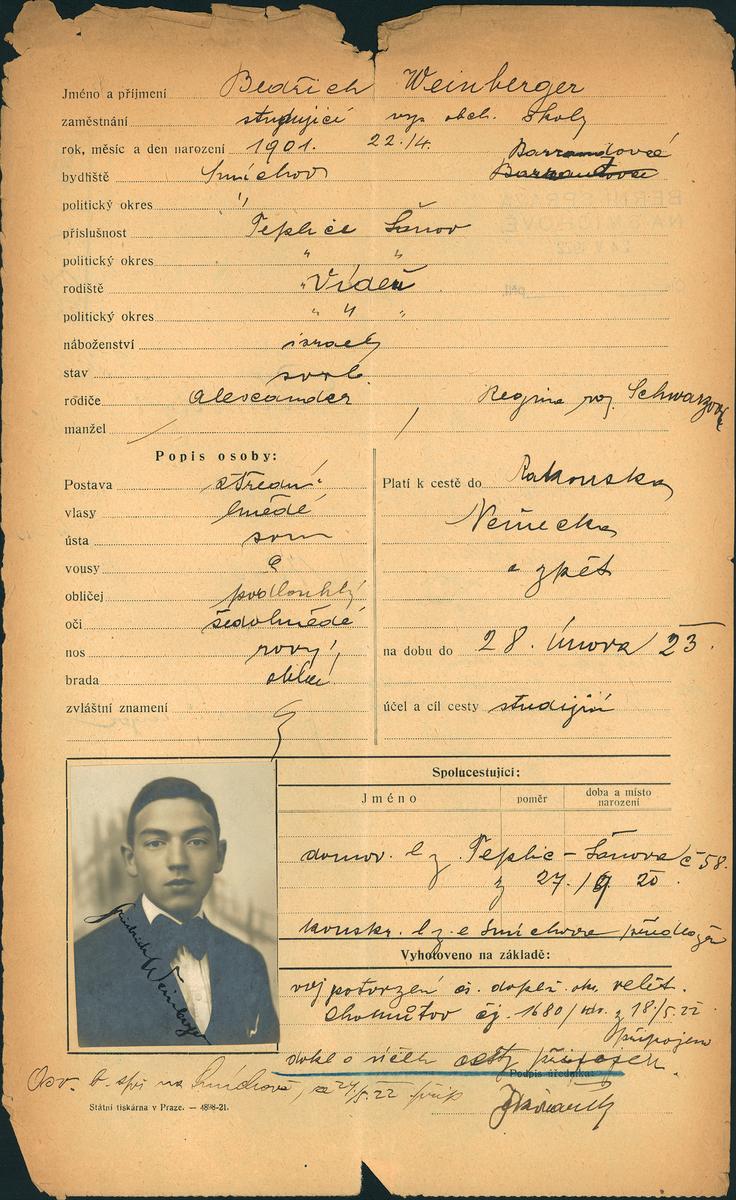 Jméno a příjmení Bedřich Weinberger
zaměstnání studující vyš obch. školy
rok, měsíc a den narození 1901. 22./4.
bydliště Smíchov
politický okres "
příslušnost Teplice Šanov
politický okres " "
rodiště Vídeň
politický okres " " "
náboženství israel
stav svob.
rodiče Alexander Regina roz. Schwarzová
manžel / /
Popis osoby:
Postava střední
vlasy hnědé
ústa soum
vousy 0
obličej podlouhlý
oči šedohnědé
nos rovný
brada oblá
zvláštní znamení
Platí k cestě do Rakouska
Německa
a zpět
na dobu do 28. února 23.
účel a cíl cesty studijní
Spolucestující:
Jméno poměr doba a místo narození
domov. l. z. Teplic-Šanova č 58.
z 27./9 20
konskr. l. z. Smíchova
Vyhotoveno na základě:
voj potvrzení čs. dopln. okr. velit.
Chomutov čj. 1680/ z 18./5.22
připojeno
dokl o
Podpis úředníka:
Friedrich Weinberger
na Smíchově, 24/5.22
Státní tiskárna v Praze. — 4898-21.